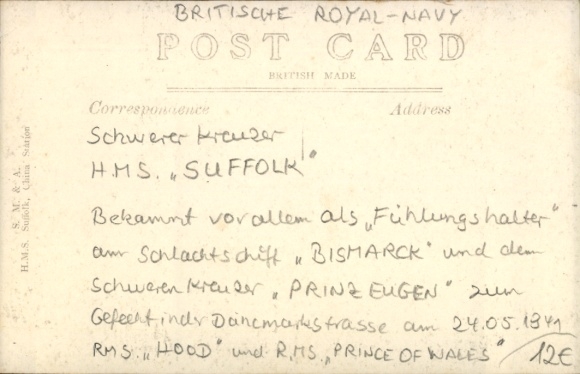 BRITISCHE ROYAL-NAVY
POST CARD
BRITISH MADE
Correspondence Address
Schwerer Kreuzer
H.M.S. „SUFFOLK"
Bekannt vor allem als „Fühlungshalter"
am Schlachtschiff „BISMARCK" und dem
Schweren Kreuzer „PRINZ EUGEN" zum
Gefecht in der Dänemarkstrasse am 24.05.1941
RMS. „HOOD" und R.MS. „PRINCE OF WALES" 12€
S. M. & A.
H.M.S. Suffolk, China Station